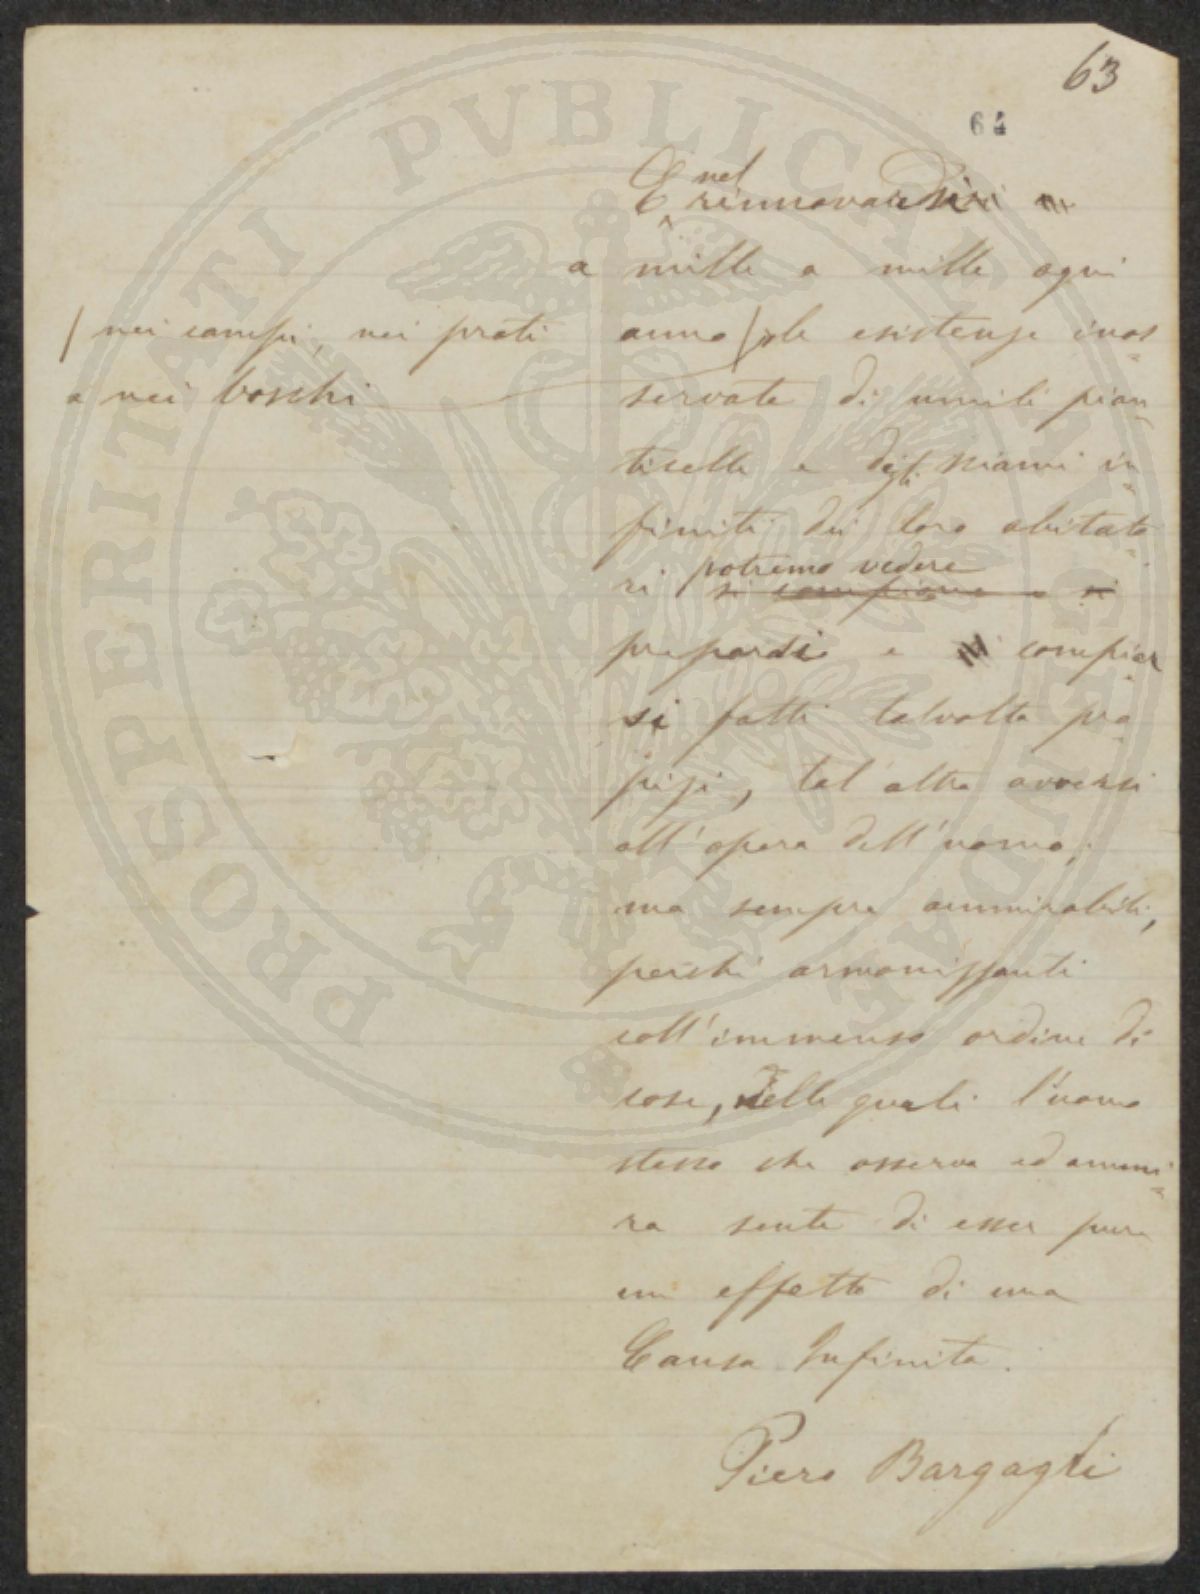 63
64
E nel rinnovarsi
a mille a mille ogni
anno le esistenze inos
/ nei campi, nei prati
e nei boschi
servate di umili pian
ticelle e degli sciami in
finiti dei loro abitato
ri potremo vedere
si compiono e si
prepararsi e compier
si fatti talvolta pro
pizi, tal'altra avversi
all'opera dell'uomo,
ma sempre ammirabili,
perchè armonizzanti
coll'immenso ordine di
cose, delle quali l'uomo
stesso che osserva ed ammi
ra sente di esser pure
un effetto di una
Causa Infinita.
Piero Bargagli
PROSPERITATI PVBLICAE AVGENDAE